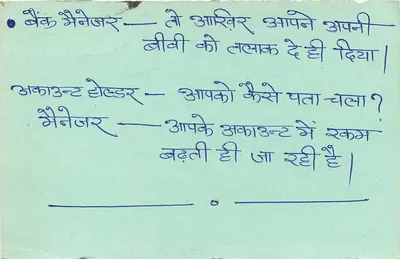 • बैंक मैनेजर — तो आखिर आपने अपनी
बीवी को तलाक दे ही दिया।
अकाउन्ट होल्डर — आपको कैसे पता चला?
मैनेजर — आपके अकाउन्ट में रकम
बढ़ती ही जा रही है।